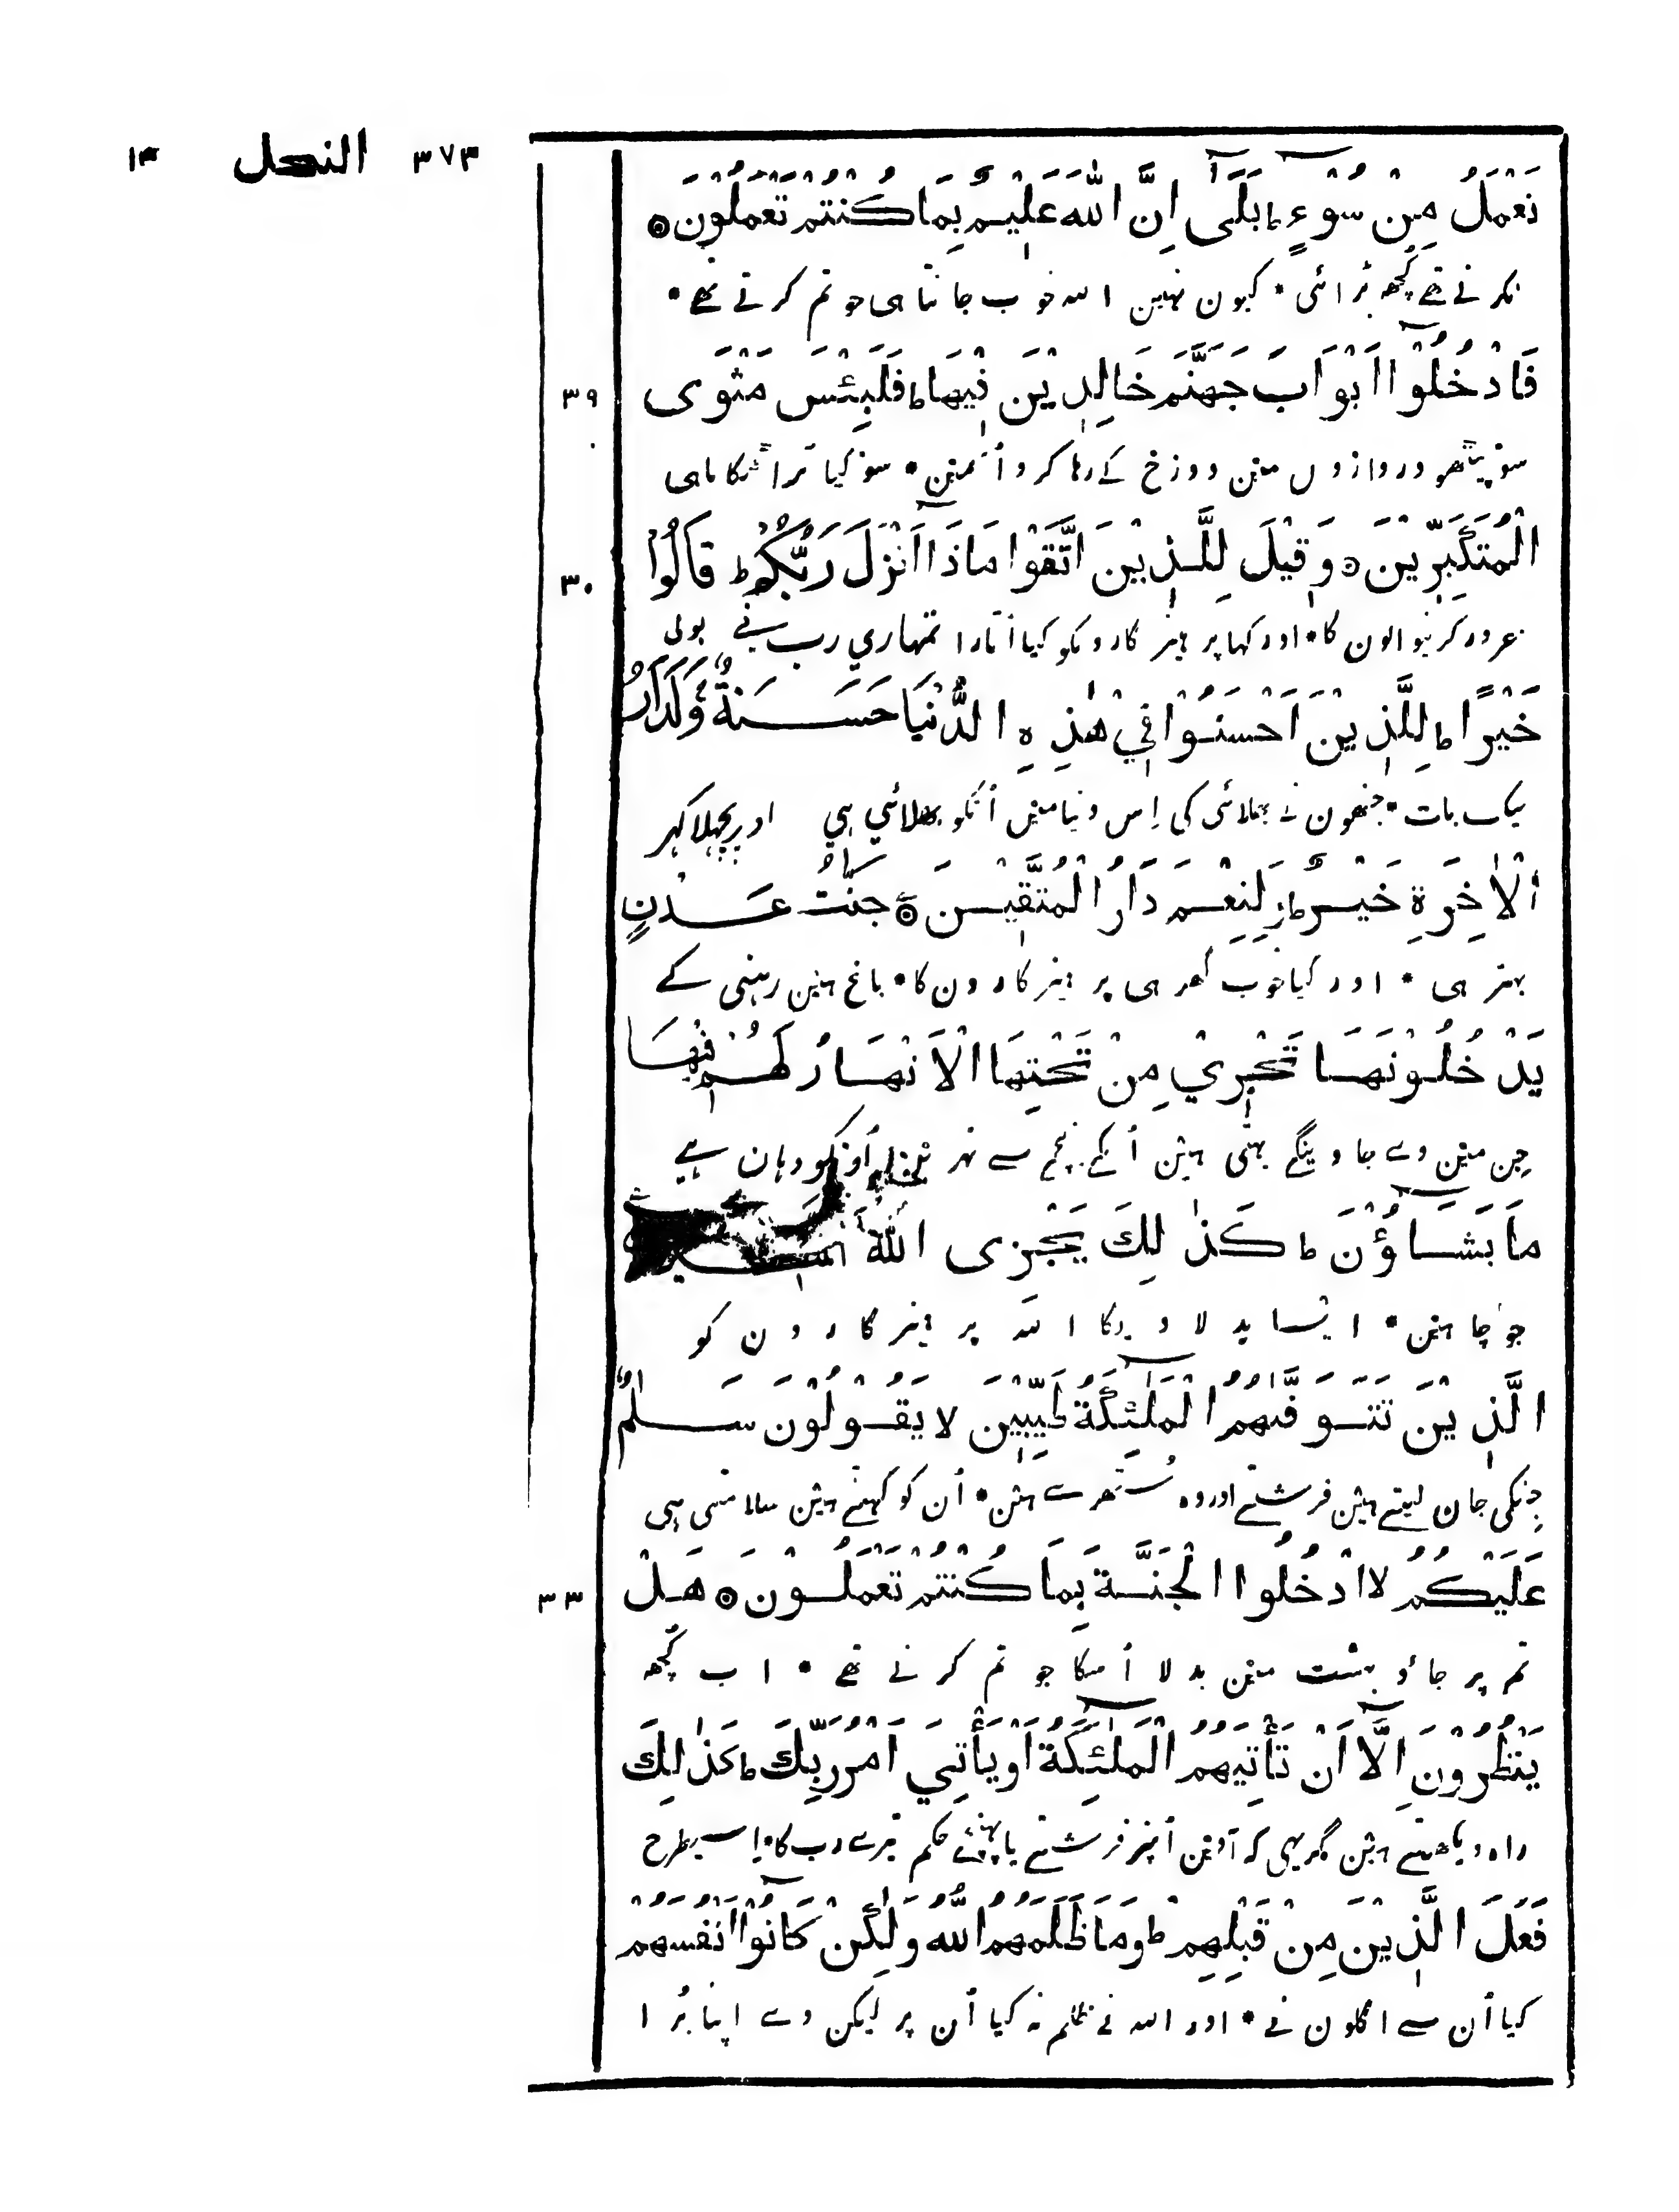 ٣٧٣ النحل ١٣
نَعْمَلُ مِنْ سُوْٓءٍ ؕ بَلٰٓى اِنَّ اللّٰهَ عَلِيْمٌ بِمَا كُنْتُمْ تَعْمَلُوْنَ ۞
نکرتے تھے کچھ بُرائی * کیون نہین اللہ خوب جانتا ہی جو تم کرتے تھے *
فَادْخُلُوْٓا اَبْوَابَ جَهَنَّمَ خَالِدِيْنَ فِيْهَا ؕ فَلَبِئْسَ مَثْوَى
٣٩
سو پیٹھو دروازوں مین دوزخ کے رہا کرو اُسمین * سو کیا بُرا ٹھکانا ہی
الْمُتَكَبِّرِيْنَ ۞ وَقِيْلَ لِلَّذِيْنَ اتَّقَوْا مَاذَآ اَنْزَلَ رَبُّكُمْ ؕ قَالُوْا
٣٠
غرور کرنیوالون کا * اور کہا پرہیزگارونکو کیا اُتارا تمہاري رب نے بولی
خَيْرًا ؕ لِلَّذِيْنَ اَحْسَنُوْا فِيْ هٰذِهِ الدُّنْيَا حَسَنَةٌ ؕ وَلَدَارُ
نیک بات * جنھون نے بھلائی کی اِس دنیا مین اُنکو بھلائي ہي اور پچھلا گہر
الْاٰخِرَةِ خَيْرٌ ؕ وَلَنِعْمَ دَارُ الْمُتَّقِيْنَ ۞ جَنّٰتُ عَدْنٍ
بہتر ہی * اور کیا خوب گھر ہی پرہیزگارون کا * باغ ہین رہنی کے
يَدْخُلُوْنَهَا تَجْرِيْ مِنْ تَحْتِهَا الْاَنْهَارُ لَهُمْ فِيْهَا
جِن مین وے جاوینگے بہتی ہین اُنکے نیچے سے نہرین اُونکو وہان ہے
مَا يَشَآؤُنَ ؕ كَذٰلِكَ يَجْزِى اللّٰهُ
جو چاہین * ایسا بدلا دیگا اللہ پرہیزگارون کو
الَّذِيْنَ تَتَوَفّٰىهُمُ الْمَلٰٓئِكَةُ طَيِّبِيْنَ لا يَقُوْلُوْنَ سَلٰمٌ
جِنکی جان لیتے ہین فرشتے اور وہ سُتھرے ہین * اُن کو کہتے ہین سلامتی ہی
عَلَيْكُمُ لا ادْخُلُوا الْجَنَّةَ بِمَا كُنْتُمْ تَعْمَلُوْنَ ۞ هَلْ
٣٣
تم پر جاؤ بہشت مین بدلا اُسکا جو تم کرتے تھے * اب کُچھ
يَنْظُرُوْنَ اِلَّآ اَنْ تَأْتِيَهُمُ الْمَلٰٓئِكَةُ اَوْ يَأْتِيَ اَمْرُ رَبِّكَ ؕ كَذٰلِكَ
راہ دیکھتے ہین مگر یہی کہ آوین اُنپر فرشتے یا پہنچے حکم تیرے رب کا * اِسیطرح
فَعَلَ الَّذِيْنَ مِنْ قَبْلِهِمْ ؕ وَمَا ظَلَمَهُمُ اللّٰهُ وَلٰكِنْ كَانُوْٓا اَنْفُسَهُمْ
کیا اُن سے اگلون نے * اور اللہ نے ظلم نہ کیا اُن پر لیکن وے اپنا بُرا